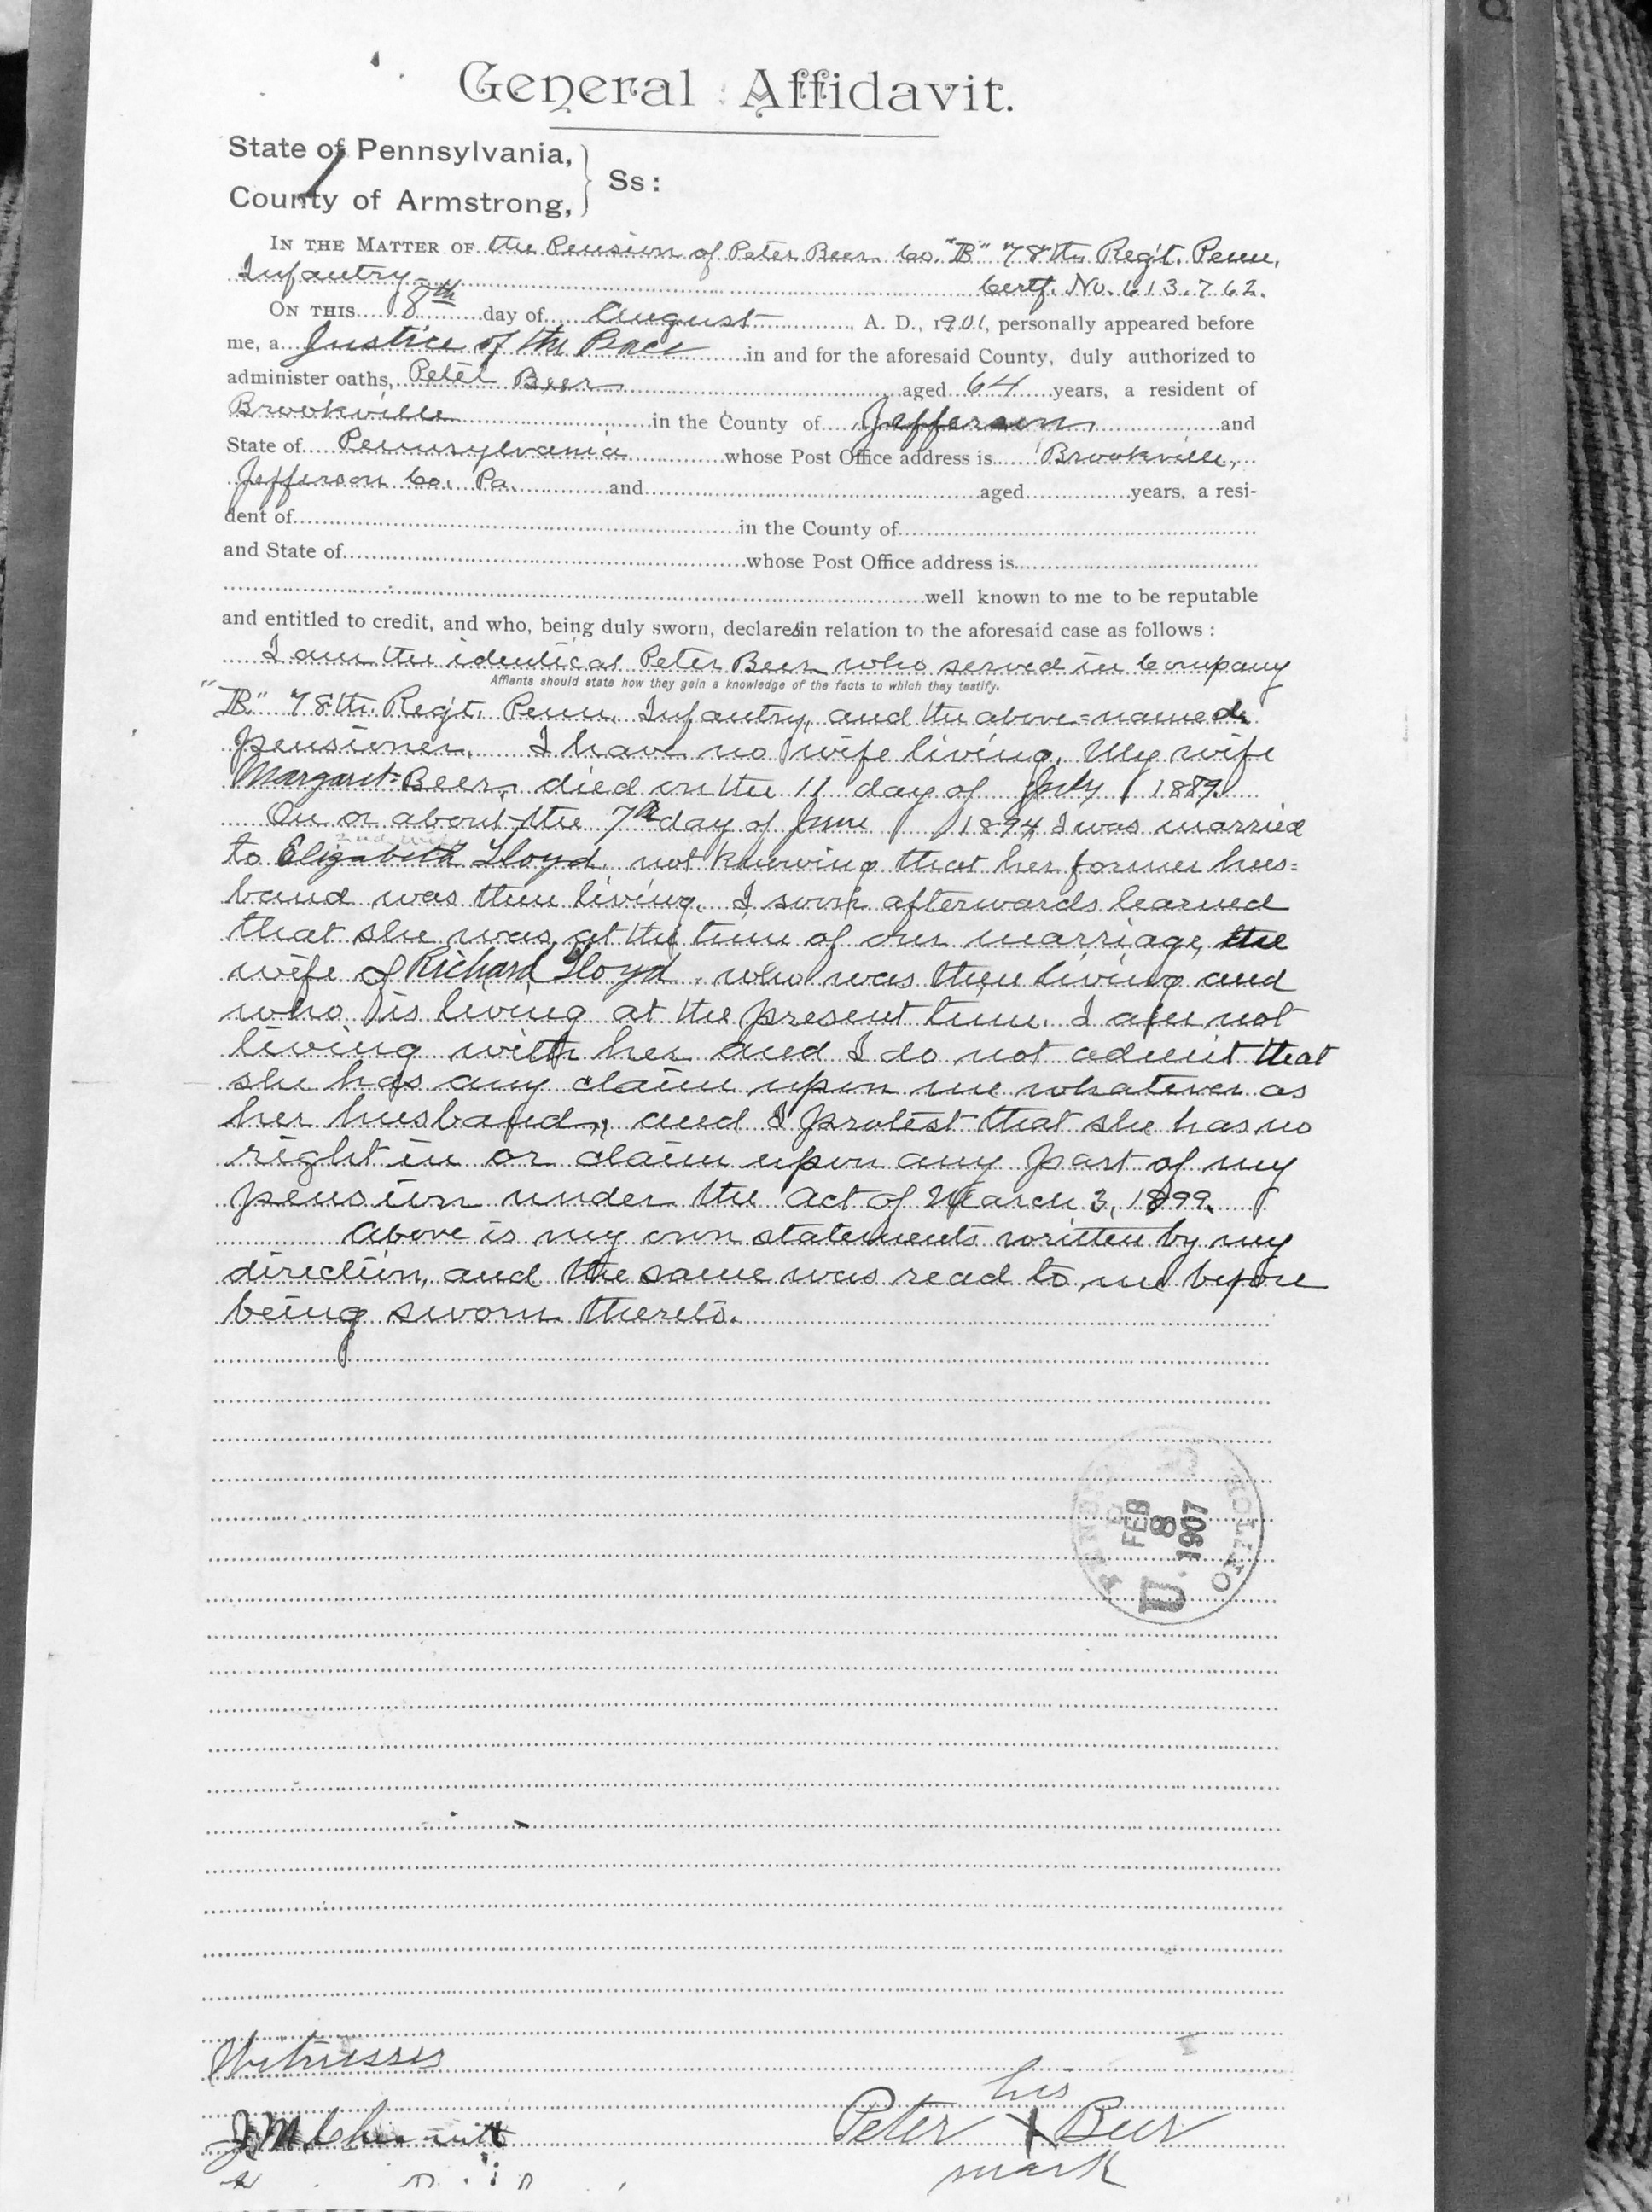 General Affidavit.
State of Pennsylvania,
County of Armstrong, } Ss:
IN THE MATTER OF the Pension of Peter Beer Co. "B" 78th Regt. Penn.
Infantry Certf. No. 613.762.
ON THIS 8th day of August, A. D., 1901, personally appeared before
me, a Justice of the Peace in and for the aforesaid County, duly authorized to
administer oaths, Peter Beer aged 64 years, a resident of
Brookville in the County of Jefferson and
State of Pennsylvania whose Post Office address is Brookville,
Jefferson Co. Pa. and aged years, a resi-
dent of in the County of
and State of whose Post Office address is
well known to me to be reputable
and entitled to credit, and who, being duly sworn, declares in relation to the aforesaid case as follows:
I am the identical Peter Beer who served in Company
Affiants should state how they gain a knowledge of the facts to which they testify.
"B" 78th. Regt. Penn. Infantry, and the above-named
pensioner. I have no wife living. My wife
Margaret Beer, died on the 11 day of July 1889
On or about the 7th day of June 1894 I was married
to Elizabeth Lloyd, not knowing that her former hus=
band was then living. I soon afterwards learned
that she was, at the time of our marriage, the
wife of Richard Lloyd, who was then living and
who is living at the present time. I am not
living with her and I do not admit that
she has any claim upon me whatever as
her husband, and I protest that she has no
right in or claim upon any part of my
pension under the Act of March 3, 1899.
Above is my own statements written by my
direction, and the same was read to me before
being sworn thereto.
U.
FEB
8
1907
Witnesses
his
Peter X Beer
mark